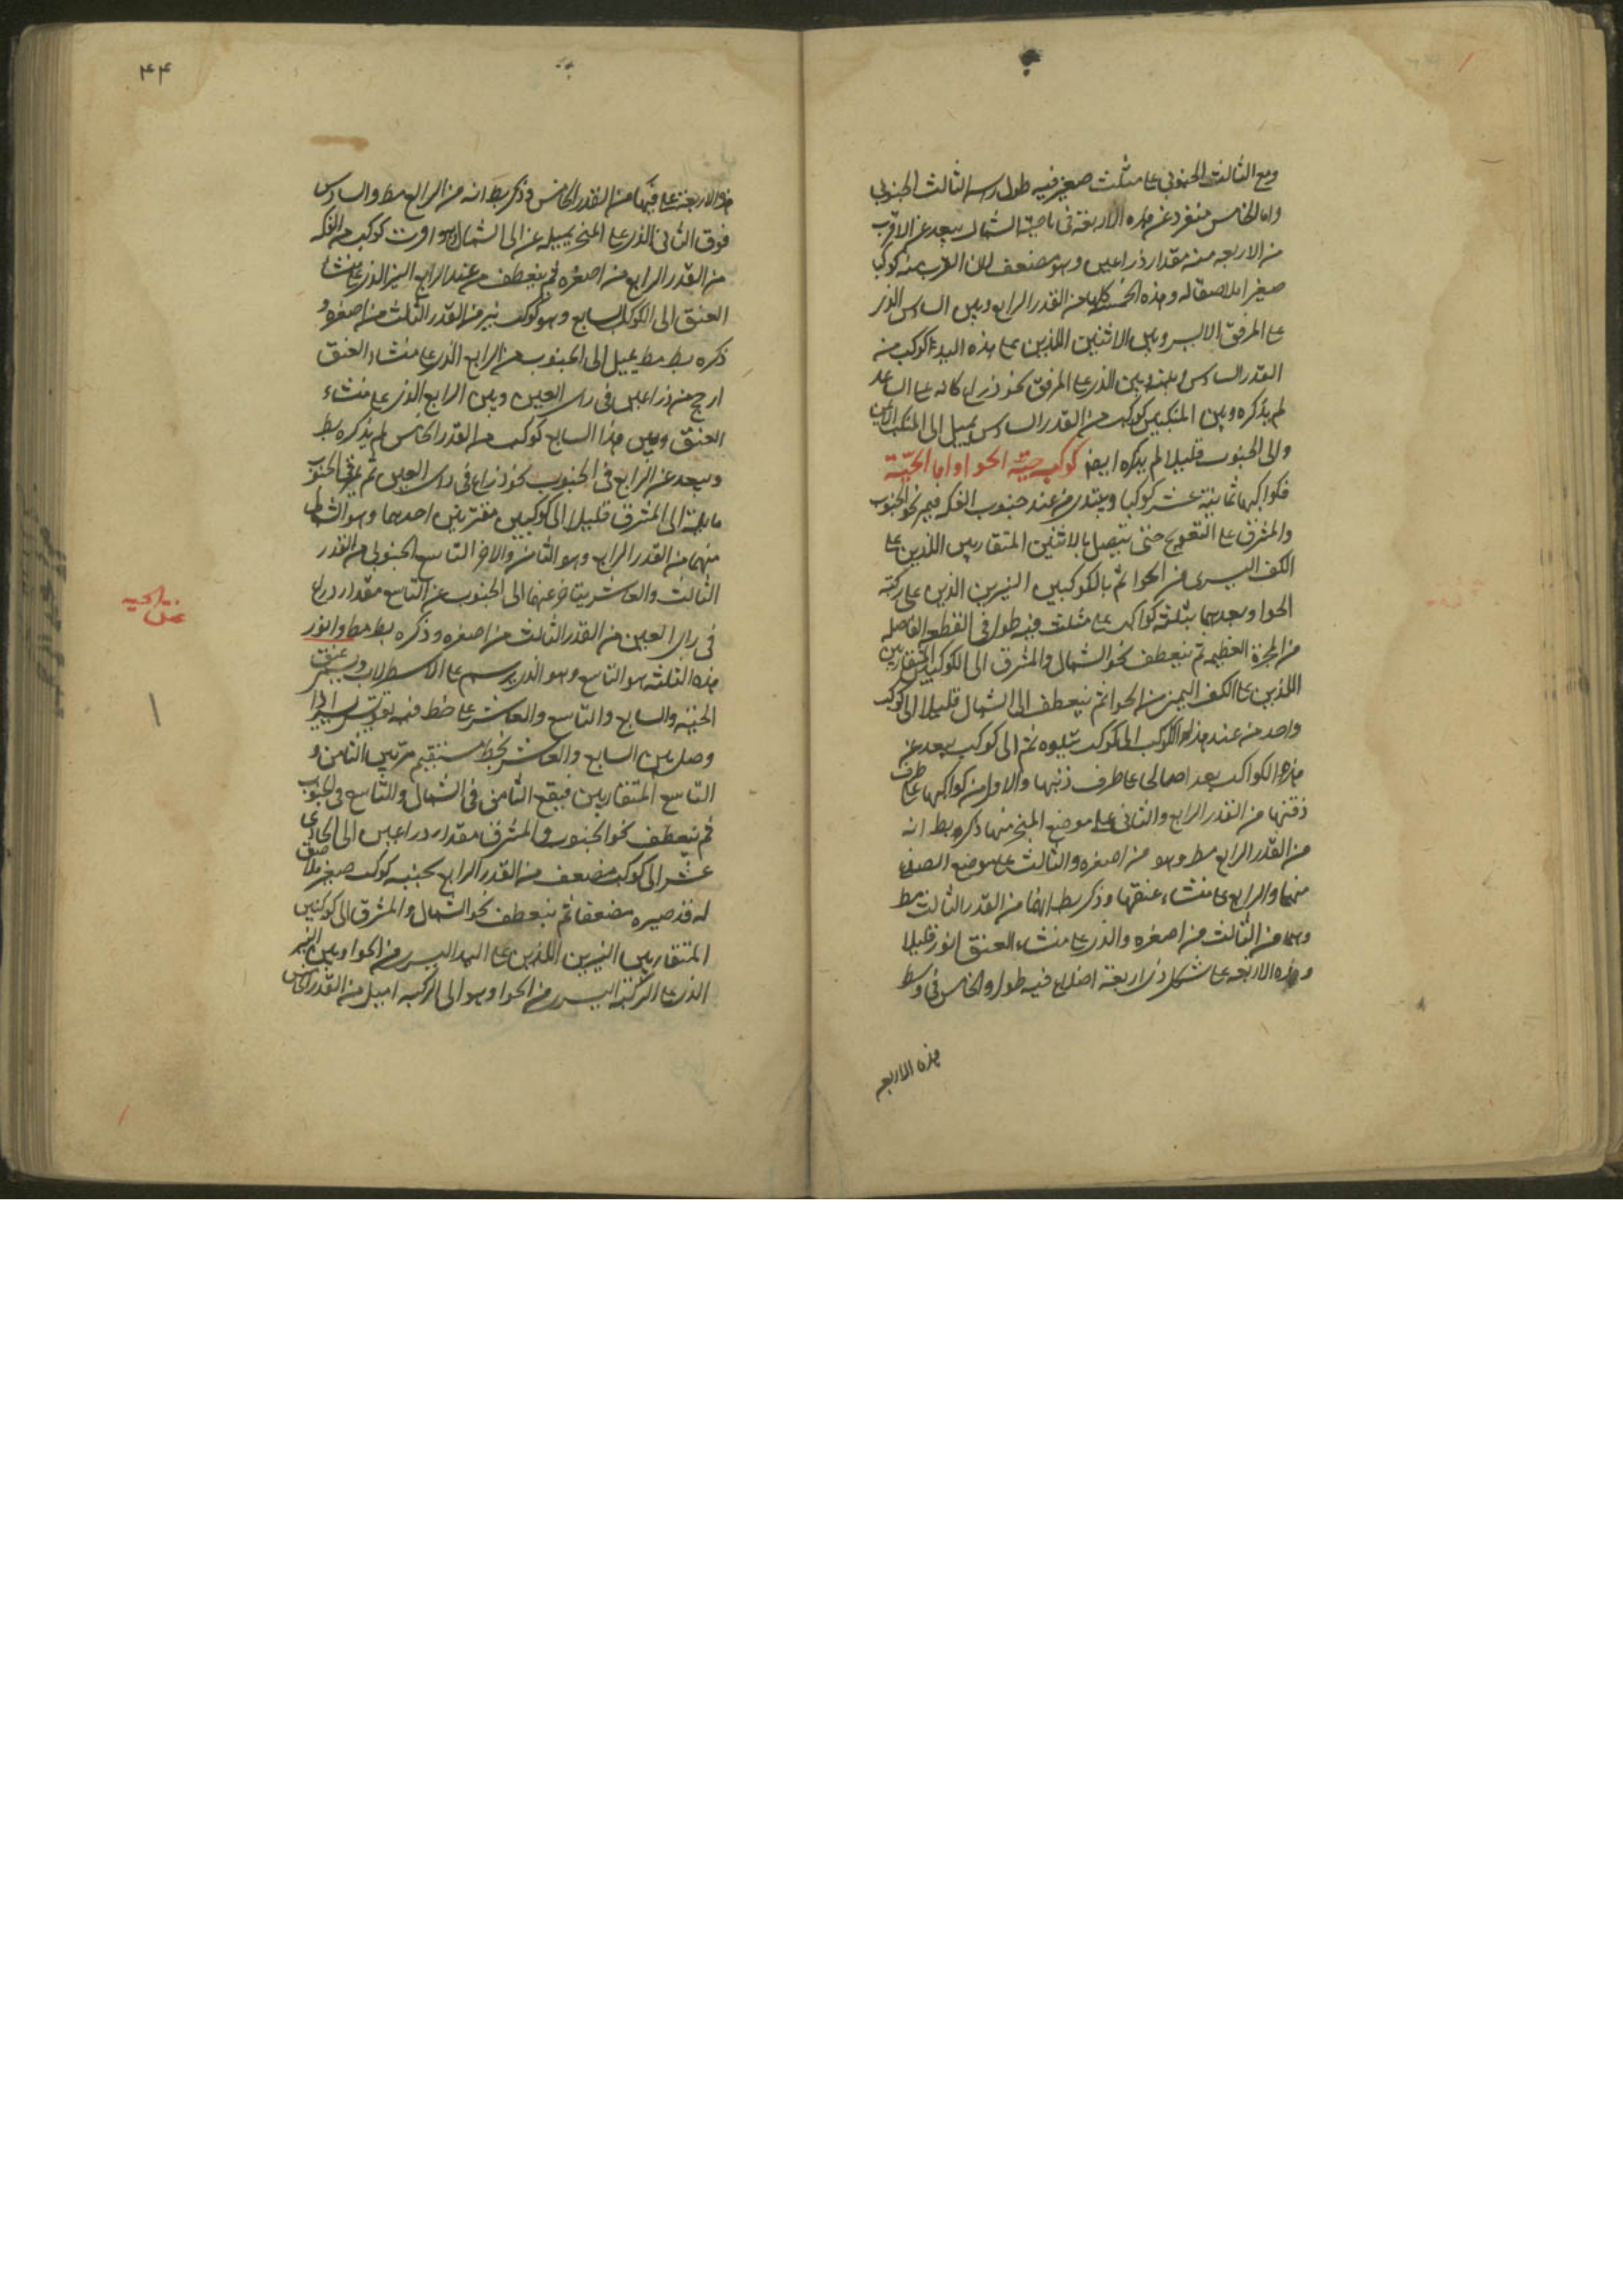 ومع الثالث الجنوبي على مثلث صغير فيه طول راسه الثالث الجنوبي
واما الخامس منفرد عن هذه الاربعة في ناحية الشمال يبعد عن الاقرب
من الاربعه منه مقدار ذراعين وهو مضعف لان القرب منه كوكبا
صغيرا ملاصقا له وهذه الخمسة كلها من القدر الرابع وبين السادس الذي
على المرفق الايسر وبين الاثنين اللذين على هذه اليد كوكب من
القدر السادس وبينه وبين الذي على المرفق نحو ذراع كانه على الساعد
لم يذكره وبين المنكبين كوكب من القدر السادس يميل الى المنكب الايمن
والى الجنوب قليلا لم يذكره ايضا كوكبة حية الحوا واما الحية
فكواكبها ثمانية عشر كوكبا ويبتدى من عند جنوب الفكه فيمر نحو الجنوب
والمشرق على التعويج حتى يتصل بالاثنين المتقاربين اللذين على
الكف اليسرى من الحوا ثم بالكوكبين النيرين الذين على ركبة
الحوا وبعدهما بثلثة كواكب على مثلث فيه طول في القطعه الفاصله
من المجرة العظيمه ثم ينعطف نحو الشمال والمشرق الى الكوكبين المتقاربين
اللذين على الكف اليمنى من الحوا ثم ينعطف الى الشمال قليلا الى كوكب
واحد من عند هذا الكوكب الى كوكب يتلوه ثم الى كوكب يبعد عن
هذه الكواكب بعدا صالحا على طرف ذنبها والاول من كواكبها على طرف
ذقنها من القدر الرابع والثانى على موضع المنخر منها ذكره بط انه
من القدر الرابع مط وهو من اصغره والثالث على موضع الصدغ
منها والرابع على منشاء عنقها وذكر بط انهما من القدر الثالث مط
وهما من الثالث من اصغره والذي على منشاء العنق انور قليلا
وهذه الاربعه على شكل ذي اربعة اضلاع فيه طول والخامس في وسط
هذه الاربعه
۴۴
هذه الاربعة على فمها من القدر الخامس وذكر بط انه من الرابع مط والسادس
فوق الثانى الذي على المنخر يميل عنه الى الشمال وهو اقرب كوكب من الفكه
من القدر الرابع من اصغره ثم ينعطف من عند الرابع النير الذي على منشاء
العنق الى الكوكب السابع وهو كوكب نير من القدر الثالث من اصغره و
ذكره بط مط يميل الى الجنوب من الرابع الذي على منشاء العنق
ارجح من ذراعين في راى العين وبين الرابع الذي على منشاء
العنق وبين هذا السابع كوكب من القدر الخامس لم يذكره بط
ويبعد عن الرابع في الجنوب نحو ذراع في راى العين ثم يمر في الجنوب
مايلة الى المشرق قليلا الى كوكبين مقترنين احدهما وهو الشمالى
منهما من القدر الرابع وهو الثامن والاخر التاسع الجنوبى من القدر
الثالث والعاشر يتاخر عنهما الى الجنوب عن التاسع مقدار ذراع
في راى العين من القدر الثالث من اصغره وذكره بط مط وانور
هذه الثلثه هو التاسع وهو الذي يرسم على الاسطرلاب ويسمى عنق
الحية والسابع والتاسع والعاشر على خط فيه تقويس يسير اذا
وصل بين السابع والعاشر بخط مستقيم مر بين الثامن و
التاسع المتقاربين فيقع الثامن في الشمال والتاسع في الجنوب
ثم ينعطف نحو الجنوب والمشرق مقدار ذراعين الى الحادى
عشر الى كوكب مضعف من القدر الرابع بجنبه كوكب صغير ملاصق
له قد صيره مضعفا ثم ينعطف نحو الشمال والمشرق الى كوكبين
المتقاربين النيرين اللذين على اليد اليسرى من الحوا وبين النير
الذي على الركبة اليسرى من الحوا وهو الى الركبه اميل من القدر الخامس
عنق الحيه